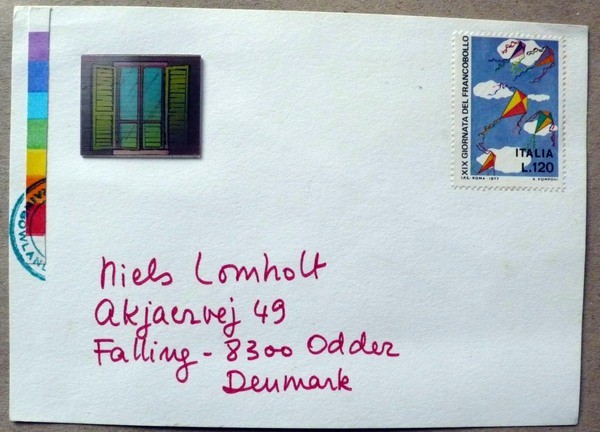 XIX GIORNATA DEL FRANCOBOLLO
ITALIA
L.120
I.P.S. ROMA - 1977
Niels Lomholt
Akjaervej 49
Falling - 8300 Odder
Denmark